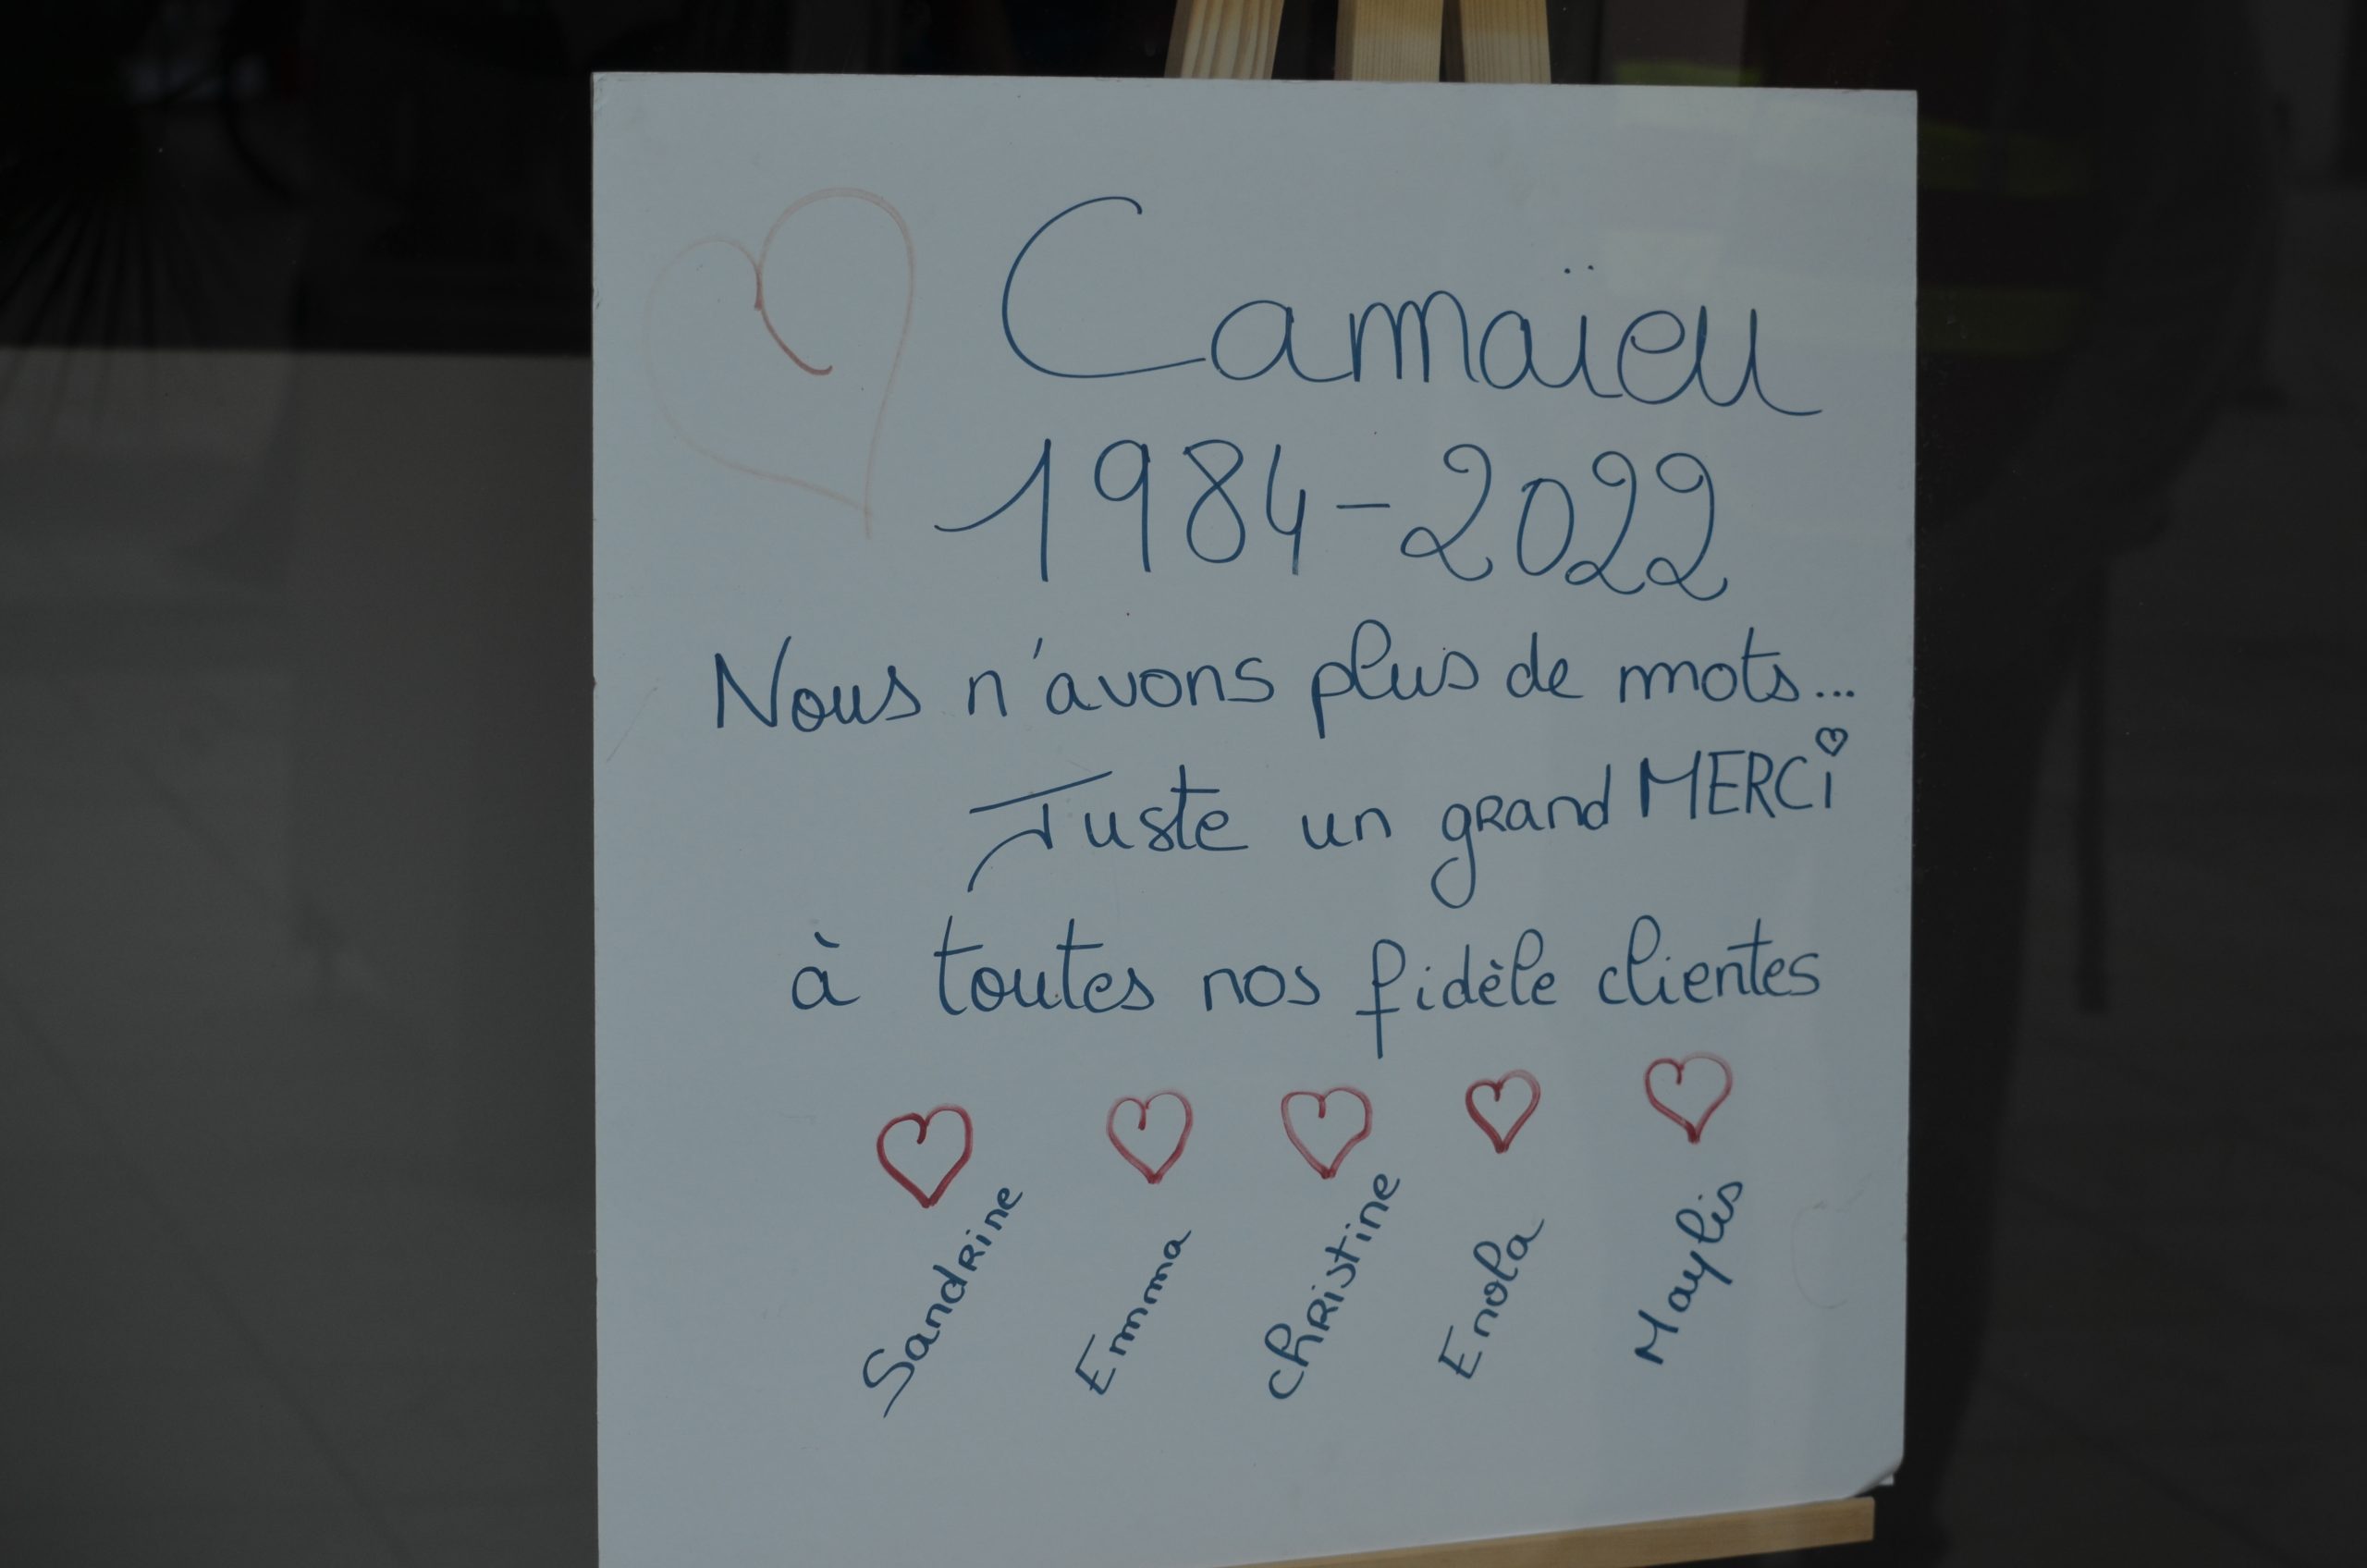 Camaïeu
1984-2022
Nous n'avons plus de mots...
Juste un grand MERCi
à toutes nos fidèle clientes
Sandrine Emma Christine Enola Maylis